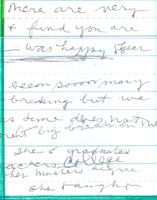 There are very
& find you are
was happy hear
been sooooo many
breaking but we
as time does not
She is graduated
College
her masters degree
She taught